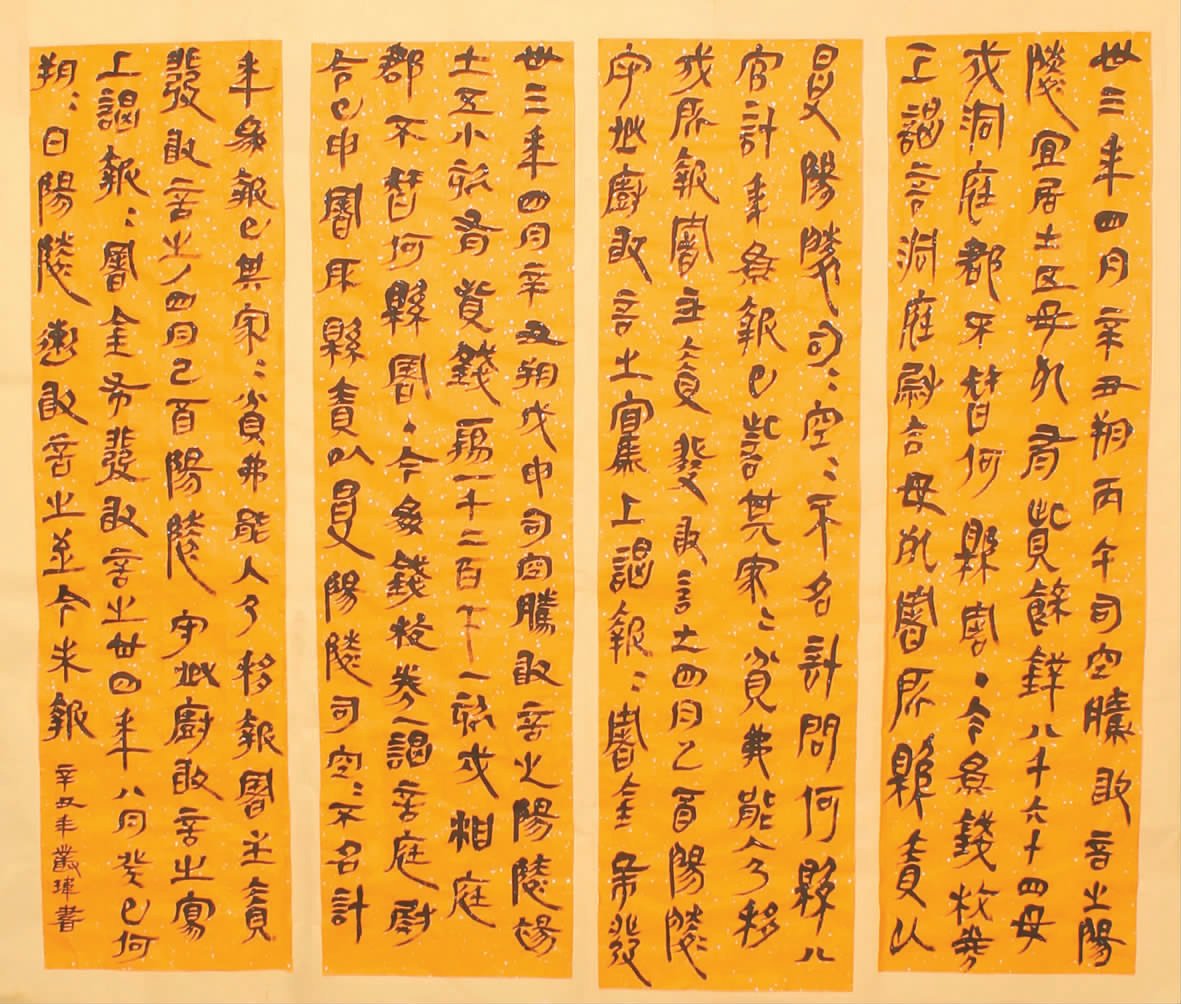 卅三年四月辛丑朔丙午司空騰敢言之陽
陵宜居士五毋死有貲餘錢八千六十四毋
戍洞庭郡不智何縣署·今為錢校券
上謁言洞庭尉言毋死署所縣責以
受陽陵司〻空〻不名計問何縣八
官計年為報已訾其家〻貧弗能入乃移
戍所報署主責發敢言之四月己酉陽陵
守丞廚敢言之寫上謁報〻署金布發
卅三年四月辛丑朔戊申司空騰敢言之陽陵
士五小欬有貲錢萬一千二百十一欬戍相庭
郡不智何縣署·今為錢校券一謁言庭尉
令已申署所縣責以受陽陵司空〻不名計
年為報已其家〻貧弗能入乃移報署主責
發敢言之/四月己酉陽陵守丞廚敢言之寫
上謁報〻署金布發敢言之卅四年八月癸巳何
朔〻日陽陵遬敢言之至今未報 辛丑年叢瑋書